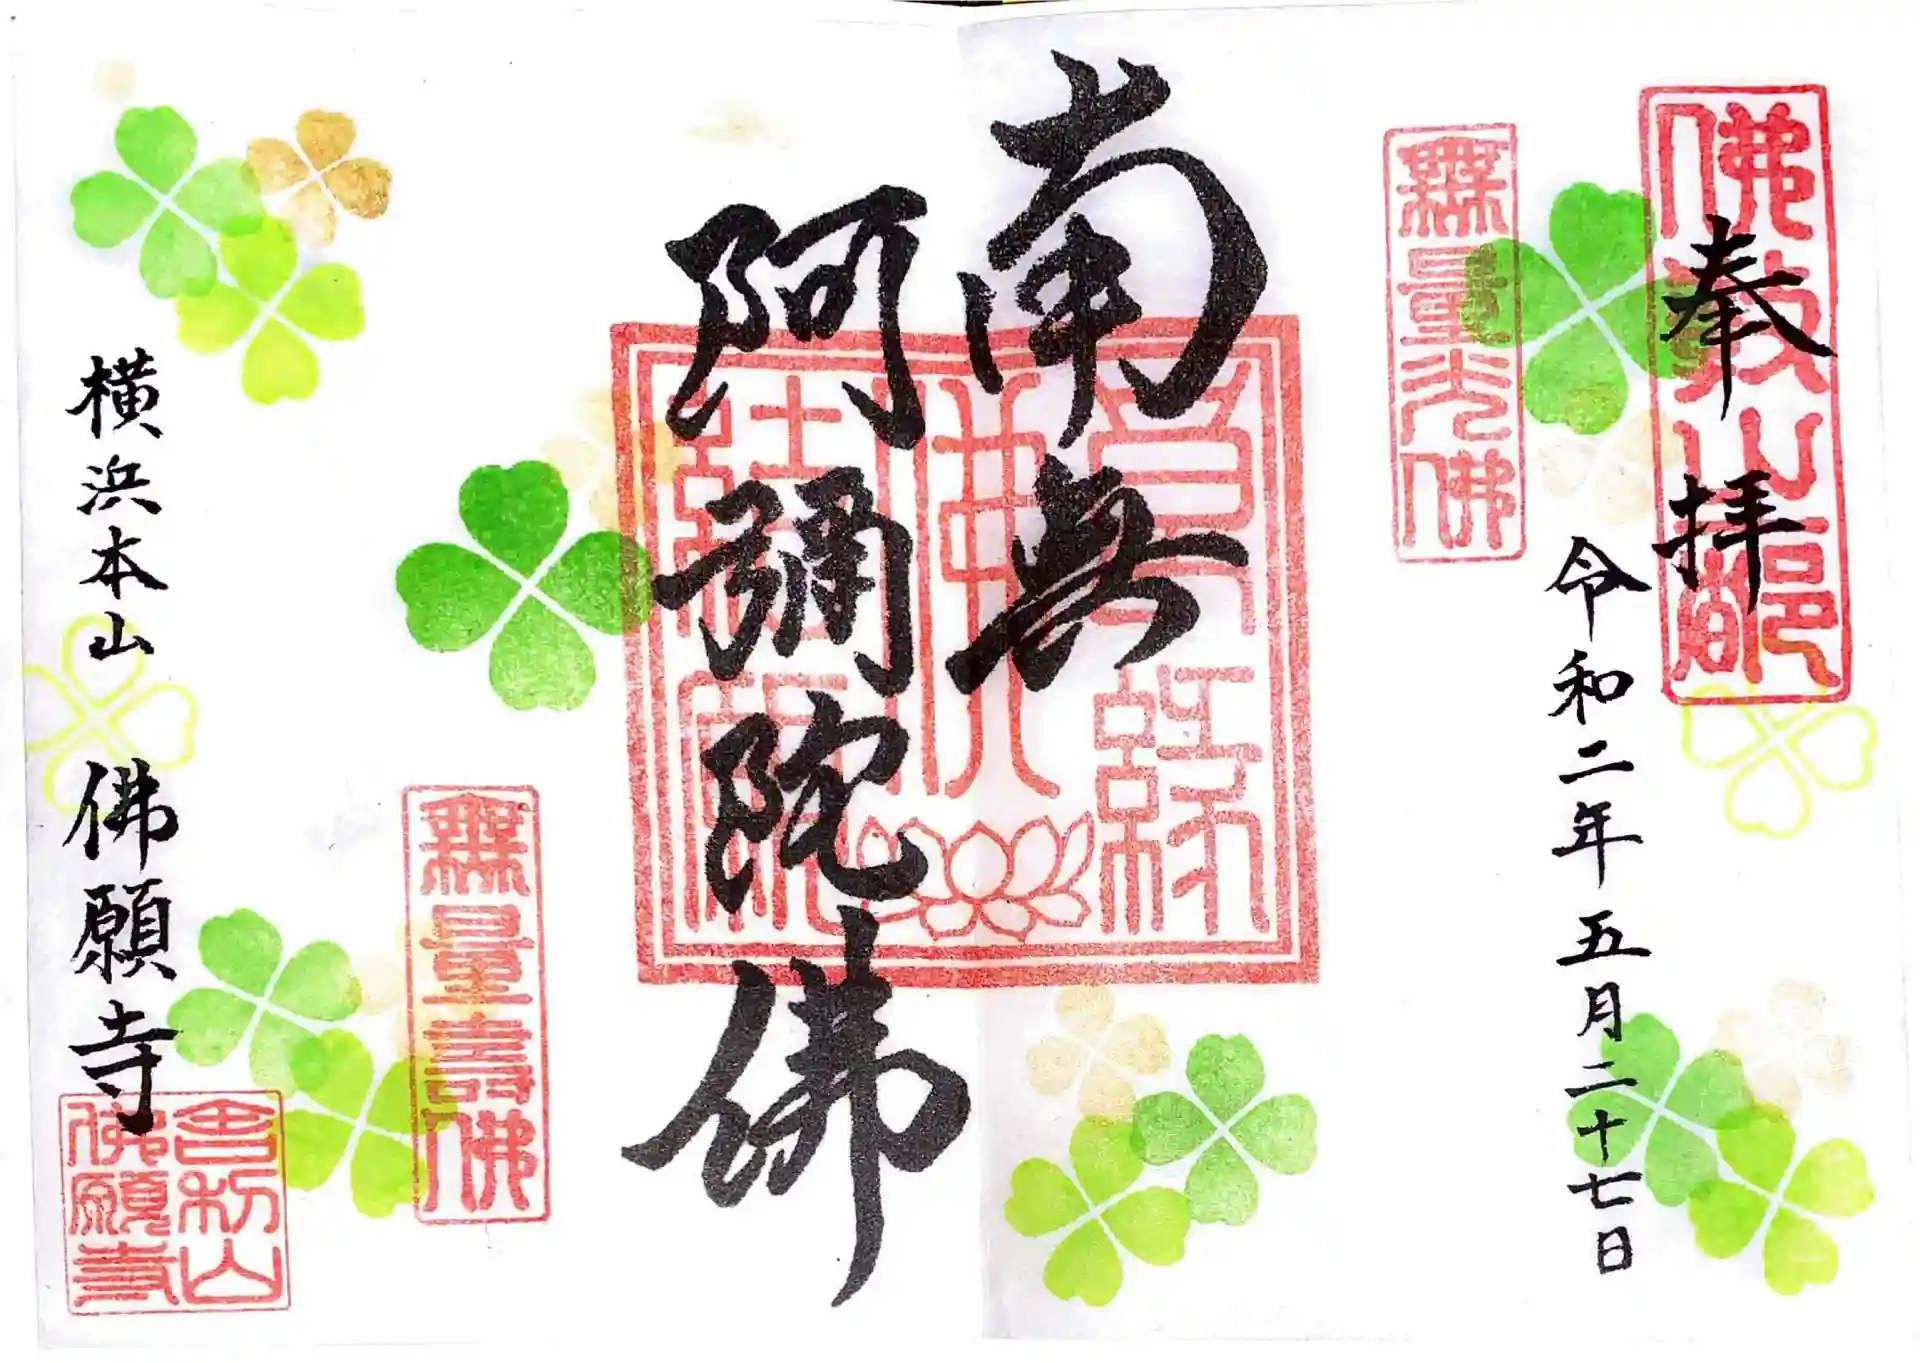 佛教山都
奉拝
令和二年五月二十七日
無量光佛
南無
阿彌陀佛
無量壽佛
横浜本山 佛願寺
舎利山
佛願寺